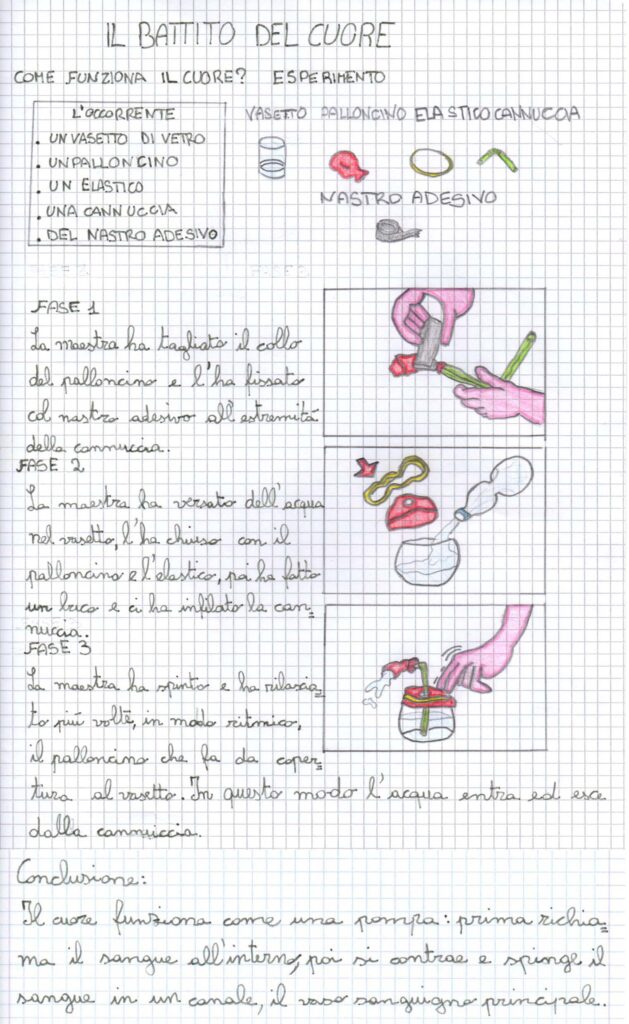 IL BATTITO DEL CUORE
COME FUNZIONA IL CUORE? ESPERIMENTO
L'OCCORRENTE
. UN VASETTO DI VETRO
. UN PALLONCINO
. UN ELASTICO
. UNA CANNUCCIA
. DEL NASTRO ADESIVO
VASETTO PALLONCINO ELASTICO CANNUCCIA
NASTRO ADESIVO
FASE 1
La maestra ha tagliato il collo
del palloncino e l'ha fissato
col nastro adesivo all'estremità
della cannuccia.
FASE 2
La maestra ha versato dell'acqua
nel vasetto, l'ha chiuso con il
palloncino e l'elastico, poi ha fatto
un buco e ci ha infilato la can=
nuccia.
FASE 3
La maestra ha spinto e ha rilascia=
to più volte, in modo ritmico,
il palloncino che fa da coper=
tura al vasetto. In questo modo l'acqua entra ed esce
dalla cannuccia.
Conclusione:
Il cuore funziona come una pompa: prima richia=
ma il sangue all'interno, poi si contrae e spinge il
sangue in un canale, il vaso sanguigno principale.